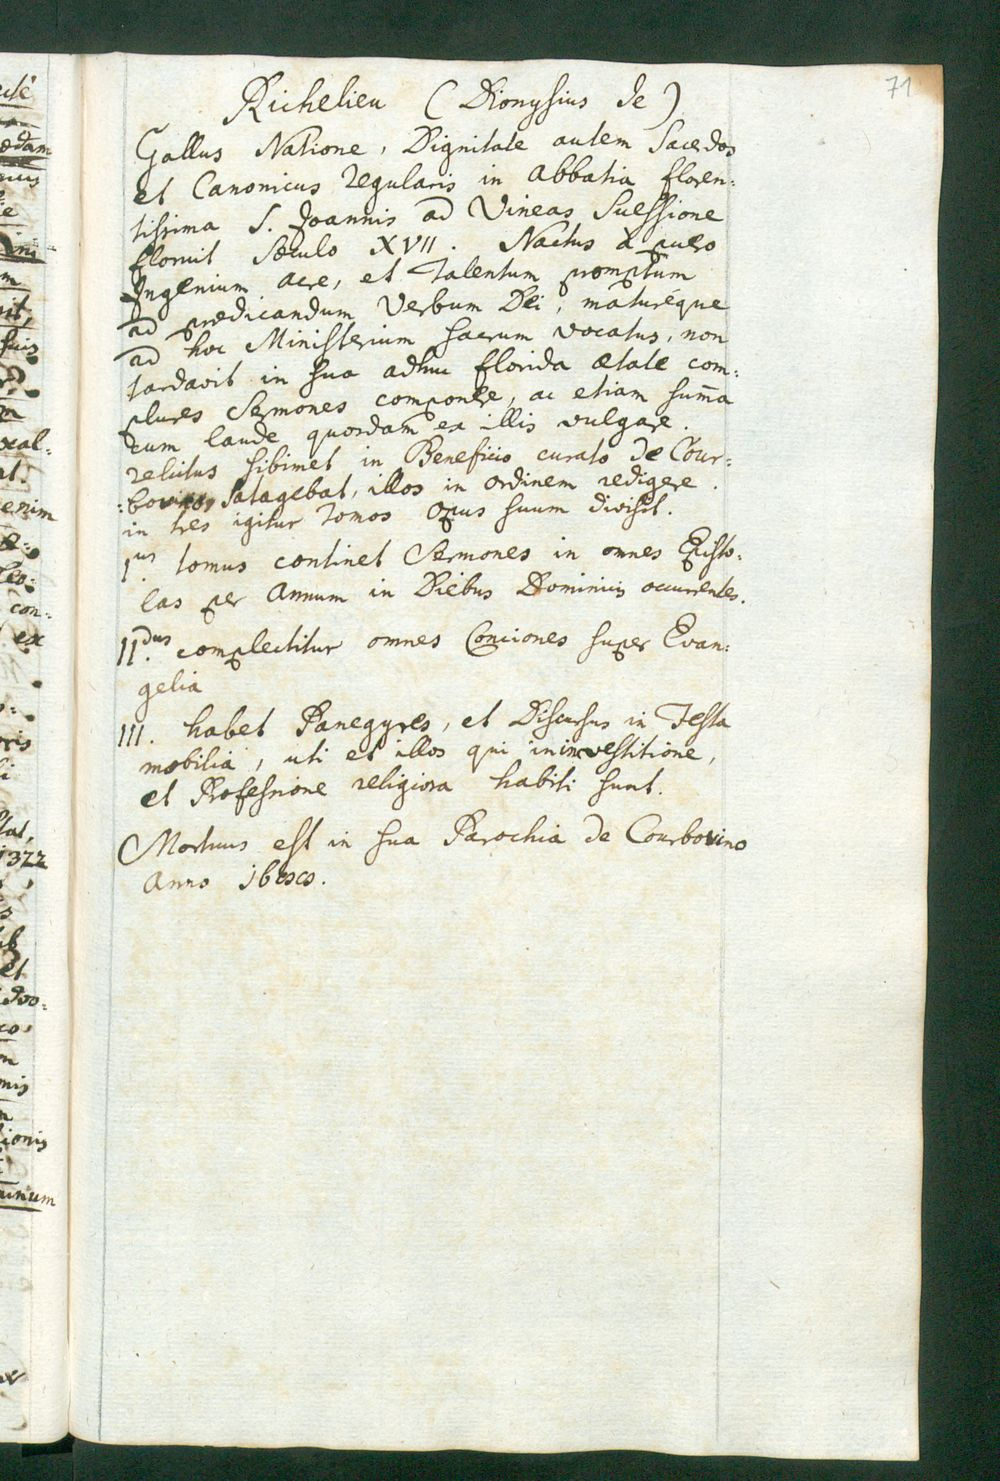 71
Richelieu (Dionysius de)
Gallus Natione, Dignitate autem Sacerdos
et Canonicus regularis in Abbatia floren:
tissima S. Joannis ad Vineas Suessione
floruit Sæculo XVII. Nactus à puero
Ingenium acre, et Talentum promptum
ad prædicandum Verbum Dei, maturéque
ad hoc Ministerium sacrum vocatus, non
tardavit in sua adhuc florida ætate com:
plures Sermones componere, ac etiam sum̄a
cum laude quosdam ex illis vulgare.
relictus sibimet in Beneficio curato de Cour:
:bovino, Satagebat, illos in ordinem redigere.
in tres igitur Tomos Opus suum divisit.
1us tomus continet Sermones in omnes Episto:
las per Annum in Diebus Dominicis occurrentes.
II.dus complectitur omnes Conciones super Evan:
gelia
III. habet Panegyres, et Discursus in Festa
mobilia, uti et illos qui in investitione,
et Professione religiosa habiti sunt.
Mortuus est in sua Parochia de Courbovino
Anno
1322
enim
con:
ex
ionis